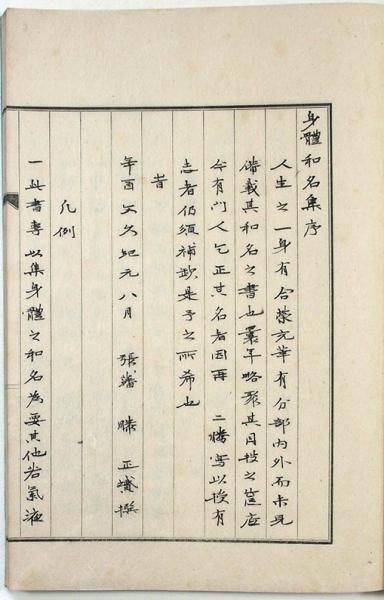 身體和名集序
人生之一身有合榮充華有分部内外而未見
備載其和名之書也曩年略聚其目投之筐底
今有門人乞正其名者因再 二謄寫以投有
志者仍須補欽是予之所希也
昔
辛酉文久紀元八月 張藩 滕 正 撰
凡例
一此書專以集身體之和名為要其他若氣液